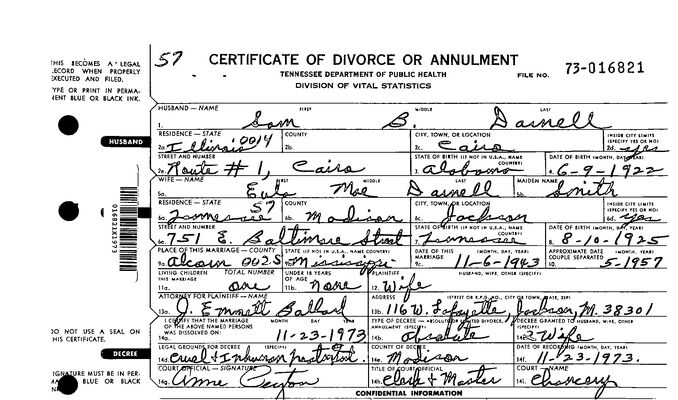 HIS BECOMES A LEGAL
ECORD WHEN PROPERLY
XECUTED AND FILED.
YPE OR PRINT IN PERMA-
NENT BLUE OR BLACK INK.
57 CERTIFICATE OF DIVORCE OR ANNULMENT
TENNESSEE DEPARTMENT OF PUBLIC HEALTH
DIVISION OF VITAL STATISTICS
FILE NO. 73-016821
HUSBAND — NAME FIRST MIDDLE LAST
1. Sam B. Darnell
HUSBAND
RESIDENCE — STATE COUNTY CITY, TOWN, OR LOCATION INSIDE CITY LIMITS (SPECIFY YES OR NO)
2a. Illinois 0014 2b. 2c. Cairo 2d. yes
STREET AND NUMBER STATE OF BIRTH (IF NOT IN U.S.A., NAME COUNTRY) DATE OF BIRTH (MONTH, DAY, YEAR)
2e. Route # 1, Cairo 3. Alabama 4. 6-9-1922
WIFE — NAME FIRST MIDDLE LAST MAIDEN NAME
5a. Eula Mae Darnell 5b. Smith
WIFE
RESIDENCE — STATE COUNTY CITY, TOWN, OR LOCATION INSIDE CITY LIMITS (SPECIFY YES OR NO)
6a. Tennessee 57 6b. Madison 6c. Jackson 6d. yes
STREET AND NUMBER STATE OF BIRTH (IF NOT IN U.S.A., NAME COUNTRY) DATE OF BIRTH (MONTH, DAY, YEAR)
6e. 751 E. Baltimore Street 7. Tennessee 8. 8-10-1925
PLACE OF THIS MARRIAGE — COUNTY STATE (IF NOT IN U.S.A., NAME COUNTRY) DATE OF THIS MARRIAGE (MONTH, DAY, YEAR) APPROXIMATE DATE COUPLE SEPARATED
9a. Alcorn 0025 9b. Mississippi 9c. 11-6-1943 10. 5-1957
LIVING CHILDREN THIS MARRIAGE TOTAL NUMBER UNDER 18 YEARS OF AGE PLAINTIFF HUSBAND, WIFE, OTHER (SPECIFY)
11a. one 11b. none 12. Wife
ATTORNEY FOR PLAINTIFF — NAME ADDRESS (STREET OR R.F.D. NO., CITY OR TOWN, STATE, ZIP)
13a. J. Emmett Ballard 13b. 116 W. Lafayette, Jackson, 38301
DO NOT USE A SEAL ON
HIS CERTIFICATE.
I CERTIFY THAT THE MARRIAGE OF THE ABOVE NAMED PERSONS WAS DISSOLVED ON: MONTH DAY YEAR TYPE OF DECREE — ABSOLUTE DIVORCE, ANNULMENT (SPECIFY) DECREE GRANTED TO HUSBAND, WIFE, OTHER (SPECIFY)
14a. 11-23-1973 14b. absolute 14c. Wife
DECREE
LEGAL GROUNDS FOR DECREE (SPECIFY) COUNTY OF DECREE DATE OF RECORDING (MONTH, DAY, YEAR)
14d. cruel & Inhuman 14e. Madison 14f. 11-23-1973.
SIGNATURE MUST BE IN PER-
MA BLUE OR BLACK
COURT OFFICIAL — SIGNATURE TITLE OF COURT OFFICIAL COURT — NAME
14g. Anne Peyton 14h. Clerk & Master 14i. Chancery
CONFIDENTIAL INFORMATION
016821X1973